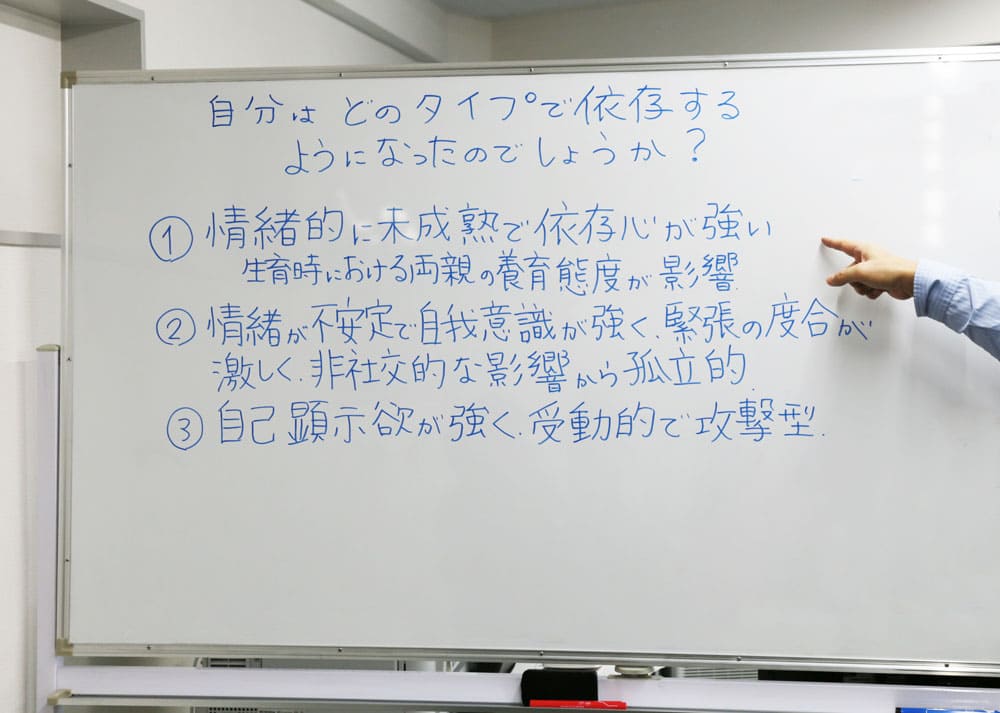 自分は どのタイプで依存する
ようになったのでしょうか？
① 情緒的に未成熟で依存心が強い
生育時における両親の養育態度が影響.
② 情緒が不安定で自我意識が強く、緊張の度合が
激しく、非社交的な影響から孤立的.
③ 自己顕示欲が強く、受動的で攻撃型.